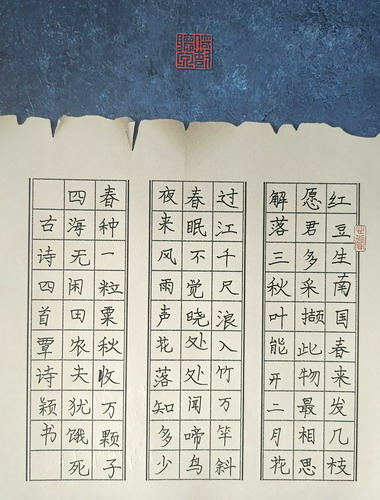 红豆生南国春来发几枝
愿君多采撷此物最相思
解落三秋叶能开二月花
过江千尺浪入竹万竿斜
春眠不觉晓处处闻啼鸟
夜来风雨声花落知多少
春种一粒粟秋收万颗子
四海无闲田农夫犹饿死
古诗四首覃诗颖书